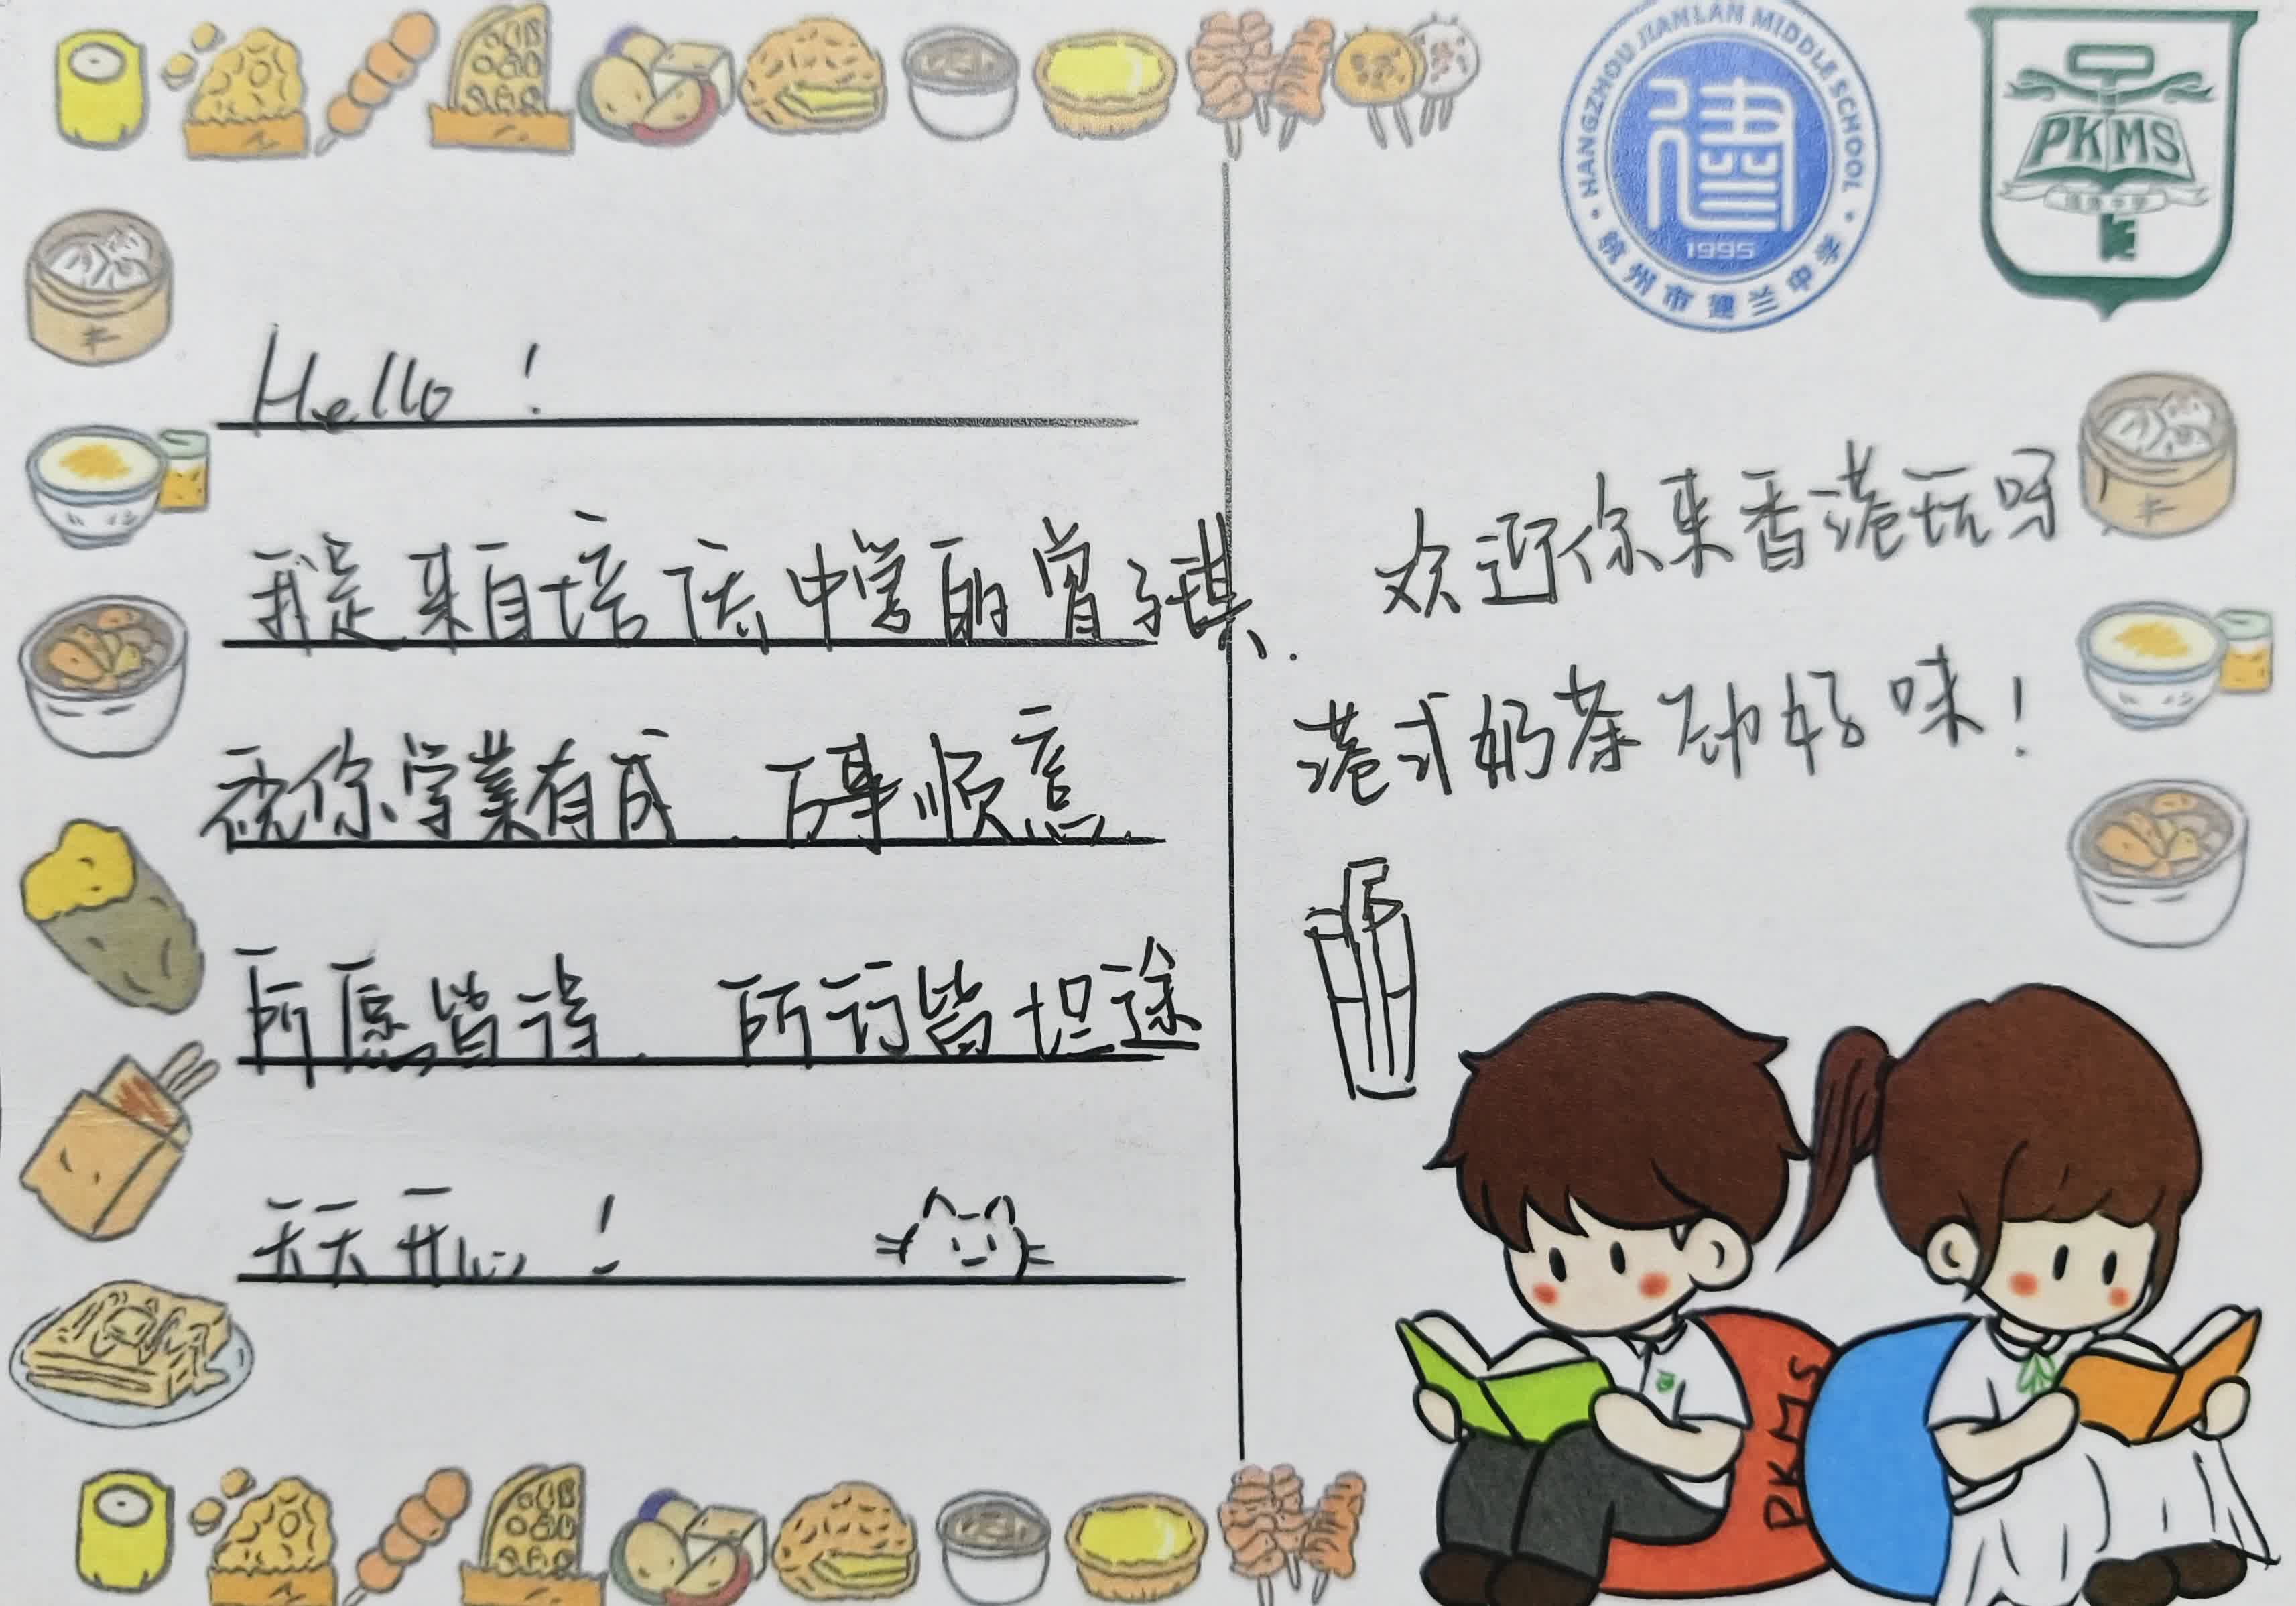 Hello !
我是来自培侨中學的曾子琪、.
祝你学業有成 . 百事顺意.
所愿皆得 . 所行皆坦途
天天开心 !
HANGZHOU JIANLAN MIDDLE SCHOOL
1995
杭州市建兰中学
PKMS
欢迎你来香港玩呀
港式奶茶 功好味 !
PKMS